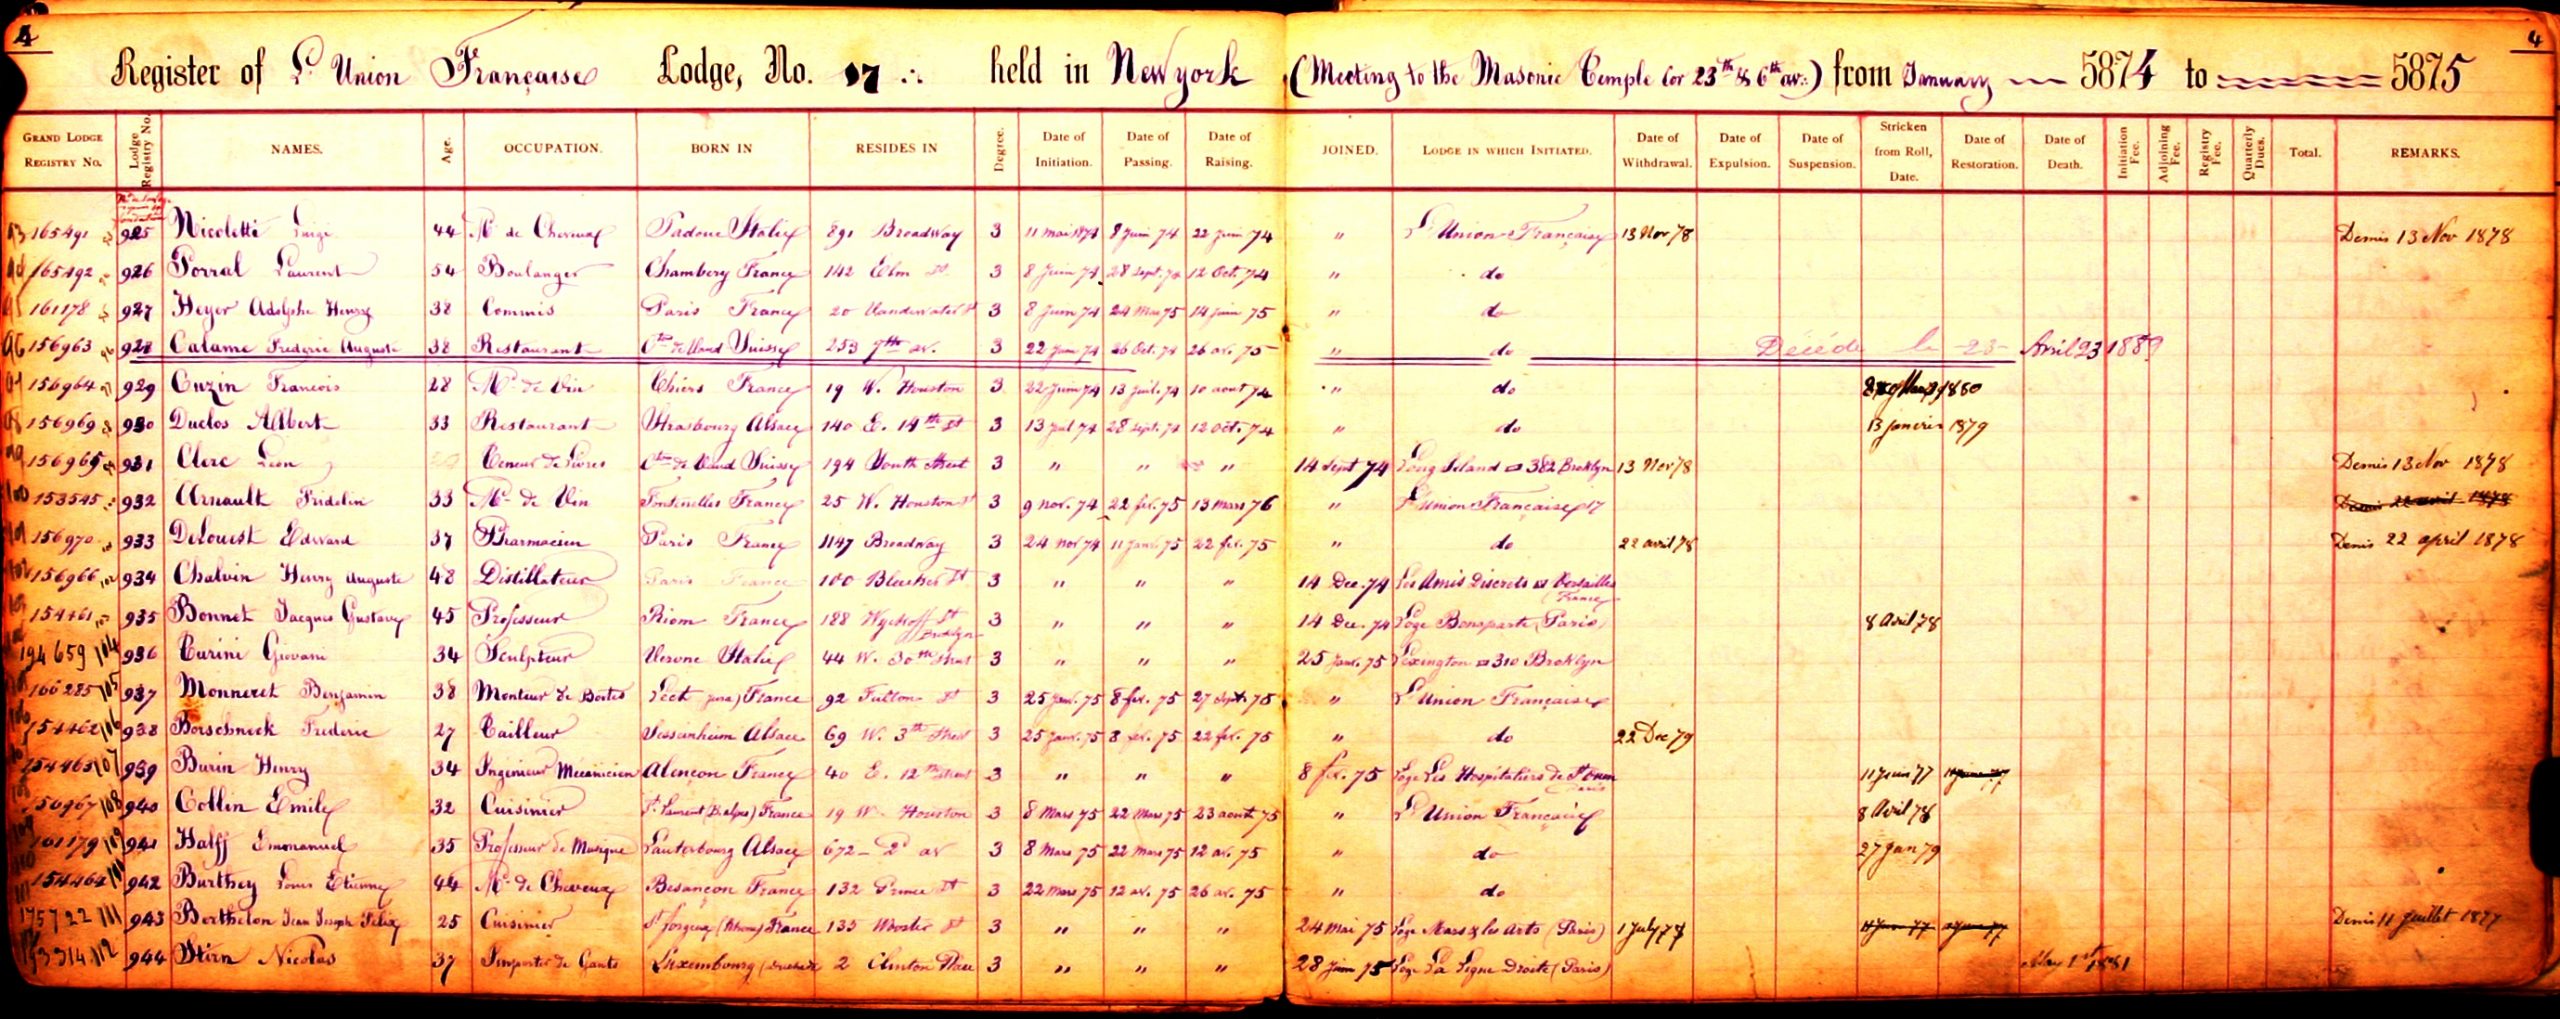 4
4
Register of L'Union Française Lodge, No. 17 ∴ held in New york (Meeting to the Masonic Temple cor 23th & 6th av.:) from January 5874 to 5875
Grand Lodge Registry No. Lodge Registry No. NAMES. Age. OCCUPATION. BORN IN RESIDES IN Degree. Date of Initiation. Date of Passing. Date of Raising. JOINED. Lodge in which Initiated. Date of Withdrawal. Date of Expulsion. Date of Suspension. Stricken from Roll, Date. Date of Restoration. Date of Death. Initiation Fee. Adjoining Fee. Registry Fee. Quarterly Dues. Total. REMARKS.
93 165491 925 Nicoletti Luigi 44 Md de Cheveux Padoue Italie 891 Broadway 3 11 mai 1874 8 Juin 74 22 Juin 74 " L'Union Française 13 Nov 78 Demis 13 Nov 1878
165492 926 Porral Laurent 54 Boulanger Chambery France 142 Elm St 3 8 Juin 74 28 Sept. 74 12 Oct. 74 " do
161178 927 Heyer Adolphe Henry 38 Commis Paris France 20 Vandewater St 3 8 Juin 74 24 Mai 75 14 Juin 75 " do
96 156963 928 Calame Frederic Auguste 38 Restaurant Cton de Vaud Suisse 253 7th av. 3 22 Juin 74 26 Oct. 74 26 av. 75 " do Décédé le 23 Avril 23 1889
156964 929 Cuzin Francois 28 Md de Vin Thiers France 19 W. Houston 3 22 Juin 74 13 Juil. 74 10 aout 74 " do 1880
98 156969 930 Duclos Albert 33 Restaurant Strasbourg Alsace 140 E. 14th St 3 13 Juil 74 28 Sept. 74 12 Oct. 74 " do 13 janvier 1879
99 156965 931 Clerc Leon Teneur de Livres Cton de Vaud Suisse 194 South Street 3 " " " 14 Sept 74 Long Island 382 Broklyn 13 Nov 78 Demis 13 Nov 1878
100 153545 932 Arnault Fridelin 33 Md de Vin Fontenelles France 25 W. Houston St 3 9 nov. 74 22 fev. 75 13 mars 76 " L'Union Française 17 Demis 22 avril 1878
101 156970 933 Delouest Edward 37 Pharmacien Paris France 1147 Broadway 3 24 nov 74 11 Janv. 75 22 fev. 75 " do 22 avril 78 Demis 22 april 1878
102 156966 102 934 Chalvin Henry Auguste 48 Distillateur Paris France 100 Bleecker St 3 " " " 14 Dec. 74 Les Amis Discrets Versailles France
154461 935 Bonnet Jacques Gustave 45 Professeur Riom France 188 Wyckoff St Broklyn 3 " " " 14 Dec. 74 Loge Bonaparte (Paris) 8 Avril 78
194659 104 936 Turini Giovani 34 Sculpteur Verone Italie 44 W. 30th Street 3 " " " 25 Janv. 75 Lexington 310 Broklyn
166285 105 937 Monneret Benjamin 38 Monteur de Boites Lect (Jura) France 92 Fulton St 3 25 Janv. 75 8 fev. 75 27 Sept. 75 " L'Union Française
154462 106 938 Borschneck Frederic 27 Tailleur Sessenheim Alsace 69 W. 3th Street 3 25 Janv. 75 8 fev. 75 22 fev. 75 " do 22 Dec 79
154463 107 939 Burin Henry 34 Ingénieur Mécanicien Alençon France 40 E. 12th Street 3 " " " 8 fev. 75 Loge Les Hospitaliers de St Ouen Paris 11 Juin 77
108 940 Collin Emile 32 Cuisinier St Laurent (B. alpes) France 19 W. Houston 3 8 Mars 75 22 Mars 75 23 aout 75 " L'Union Française 8 Avril 78
161179 109 941 Halff Emmanuel 35 Professeur de Musique Lauterbourg Alsace 672 - 2d av 3 8 Mars 75 22 Mars 75 12 av. 75 " do 27 Jan 79
154464 110 942 Burthey Louis Etienne 44 Md de Cheveux Besançon France 132 Prince St 3 22 Mars 75 12 av. 75 26 av. 75 " do
175722 111 943 Berthelon Jean Joseph Felix 25 Cuisinier St forgeux (Rhone) France 135 Wooster St 3 " " " 24 Mai 75 Loge Mars & les Arts (Paris) 1 July 77 11 Juin 77 Demis 11 Juillet 1877
112 944 Stirn Nicolas 37 Importer de Gants Luxembourg (Duché de 2 Clinton Place 3 " " " 28 Juin 75 Loge La Ligne Droite (Paris) May 1st 1881